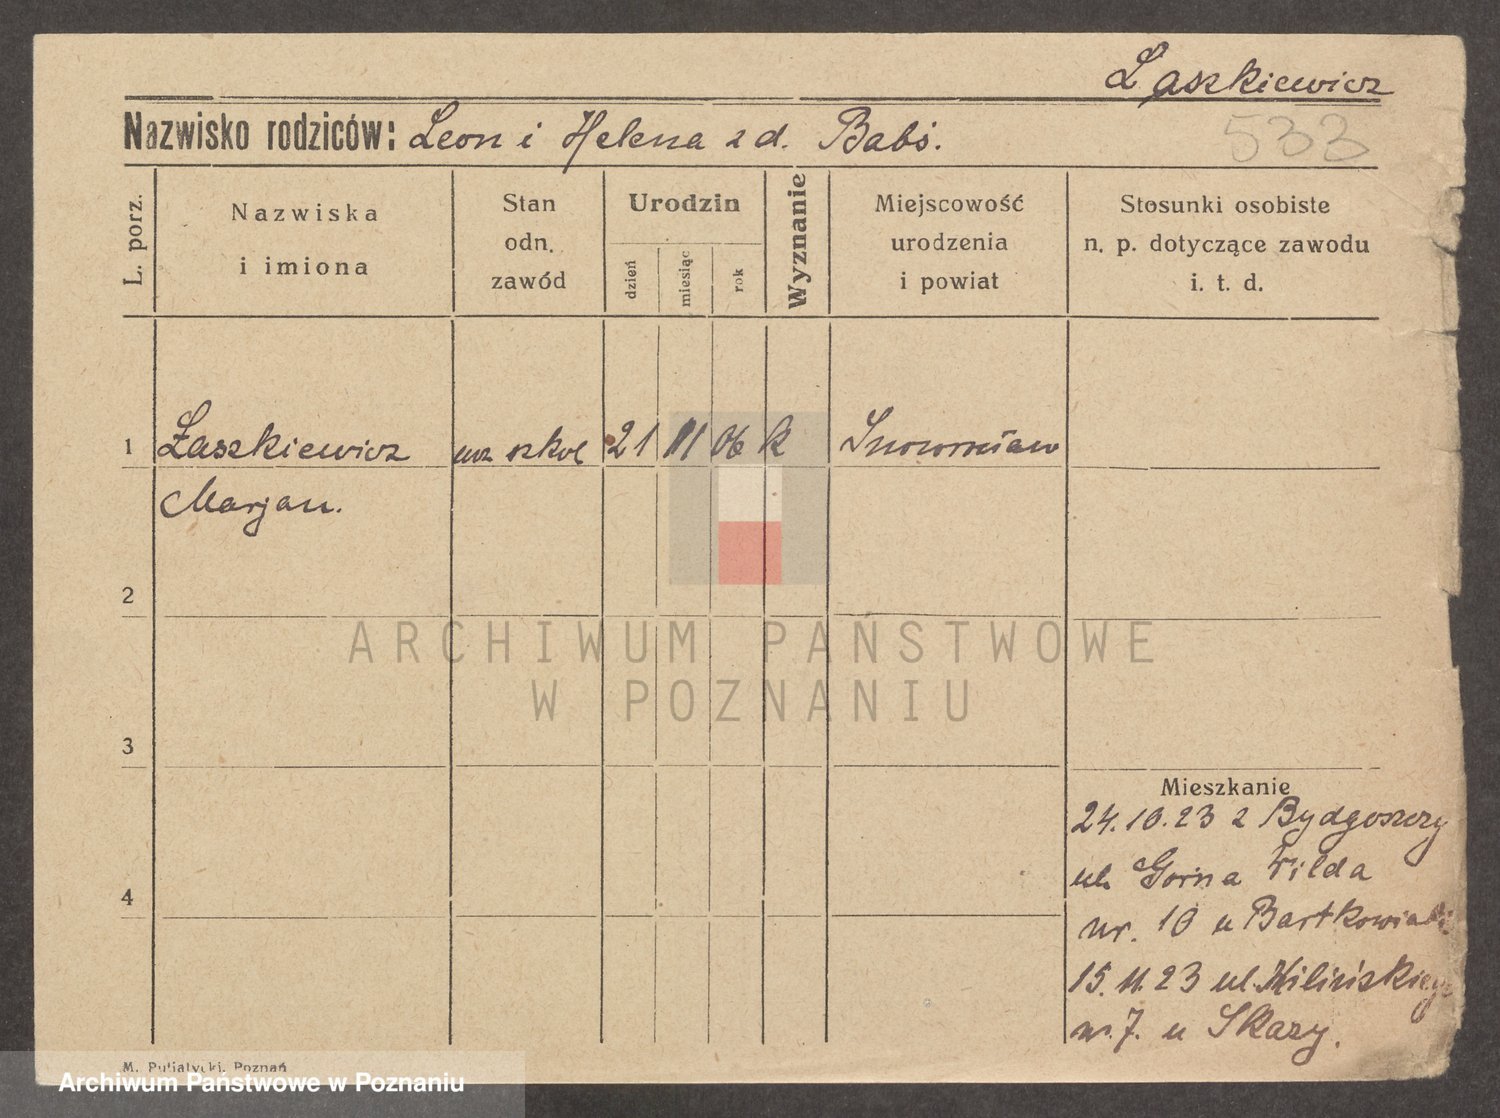 Laszkiewicz
533
Nazwisko rodziców: Leon i Helena z d. Babś.
L. porz.
Nazwiska
i imiona
Stan
odn.
zawód
Urodzin
dzień
miesiąc
rok
Wyznanie
Miejscowość
urodzenia
i powiat
Stosunki osobiste
n. p. dotyczące zawodu
i. t. d.
1 Łaszkiewicz ucz szkol 21 11 06 k
Marjan.
2
ARCHIWUM PAŃSTWOWE
W POZNANIU
3
Mieszkanie
24.10.23 z Bydgoszczy
ul. Górna Wilda
4
nr. 10 u Bartkowiak
15.11.23 ul. Kilińskiego
nr. 7. u Skazy.
M. Putiatycki, Poznań
Archiwum Państwowe w Poznaniu